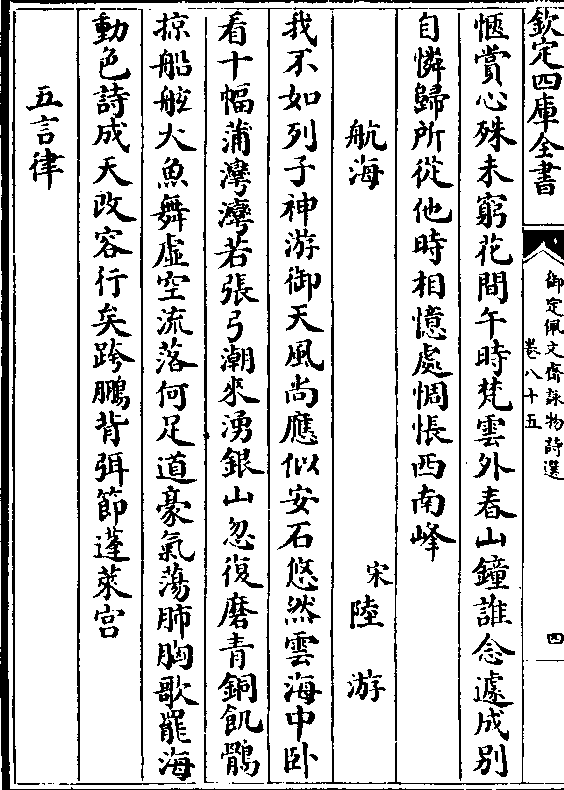 欽定四庫全書
御定佩文齋詠物詩選
卷八十五
四
愜賞心殊未窮花間午時梵雲外春山鐘誰念遽成別
自憐歸所從他時相憶處惆悵西南峰
航海
宋陸游
我不如列子神游御天風尚應似安石悠然雲海中卧
看十幅蒲灣灣若張弓潮來湧銀山忽復磨青銅飢鶻
掠船舷大魚舞虛空流落何足道豪氣蕩肺胸歌罷海
動色詩成天改容行矣跨鵬背弭節蓬萊宮
五言律